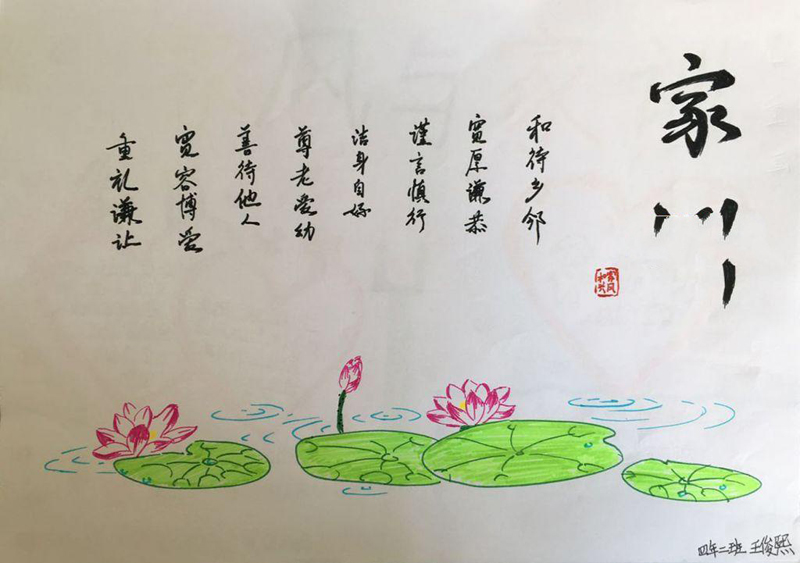 家训
和待乡邻
宽厚谦恭
谨言慎行
洁身自好
尊老爱幼
善待他人
宽容博爱
重礼谦让
家风
四年二班 王俊熙